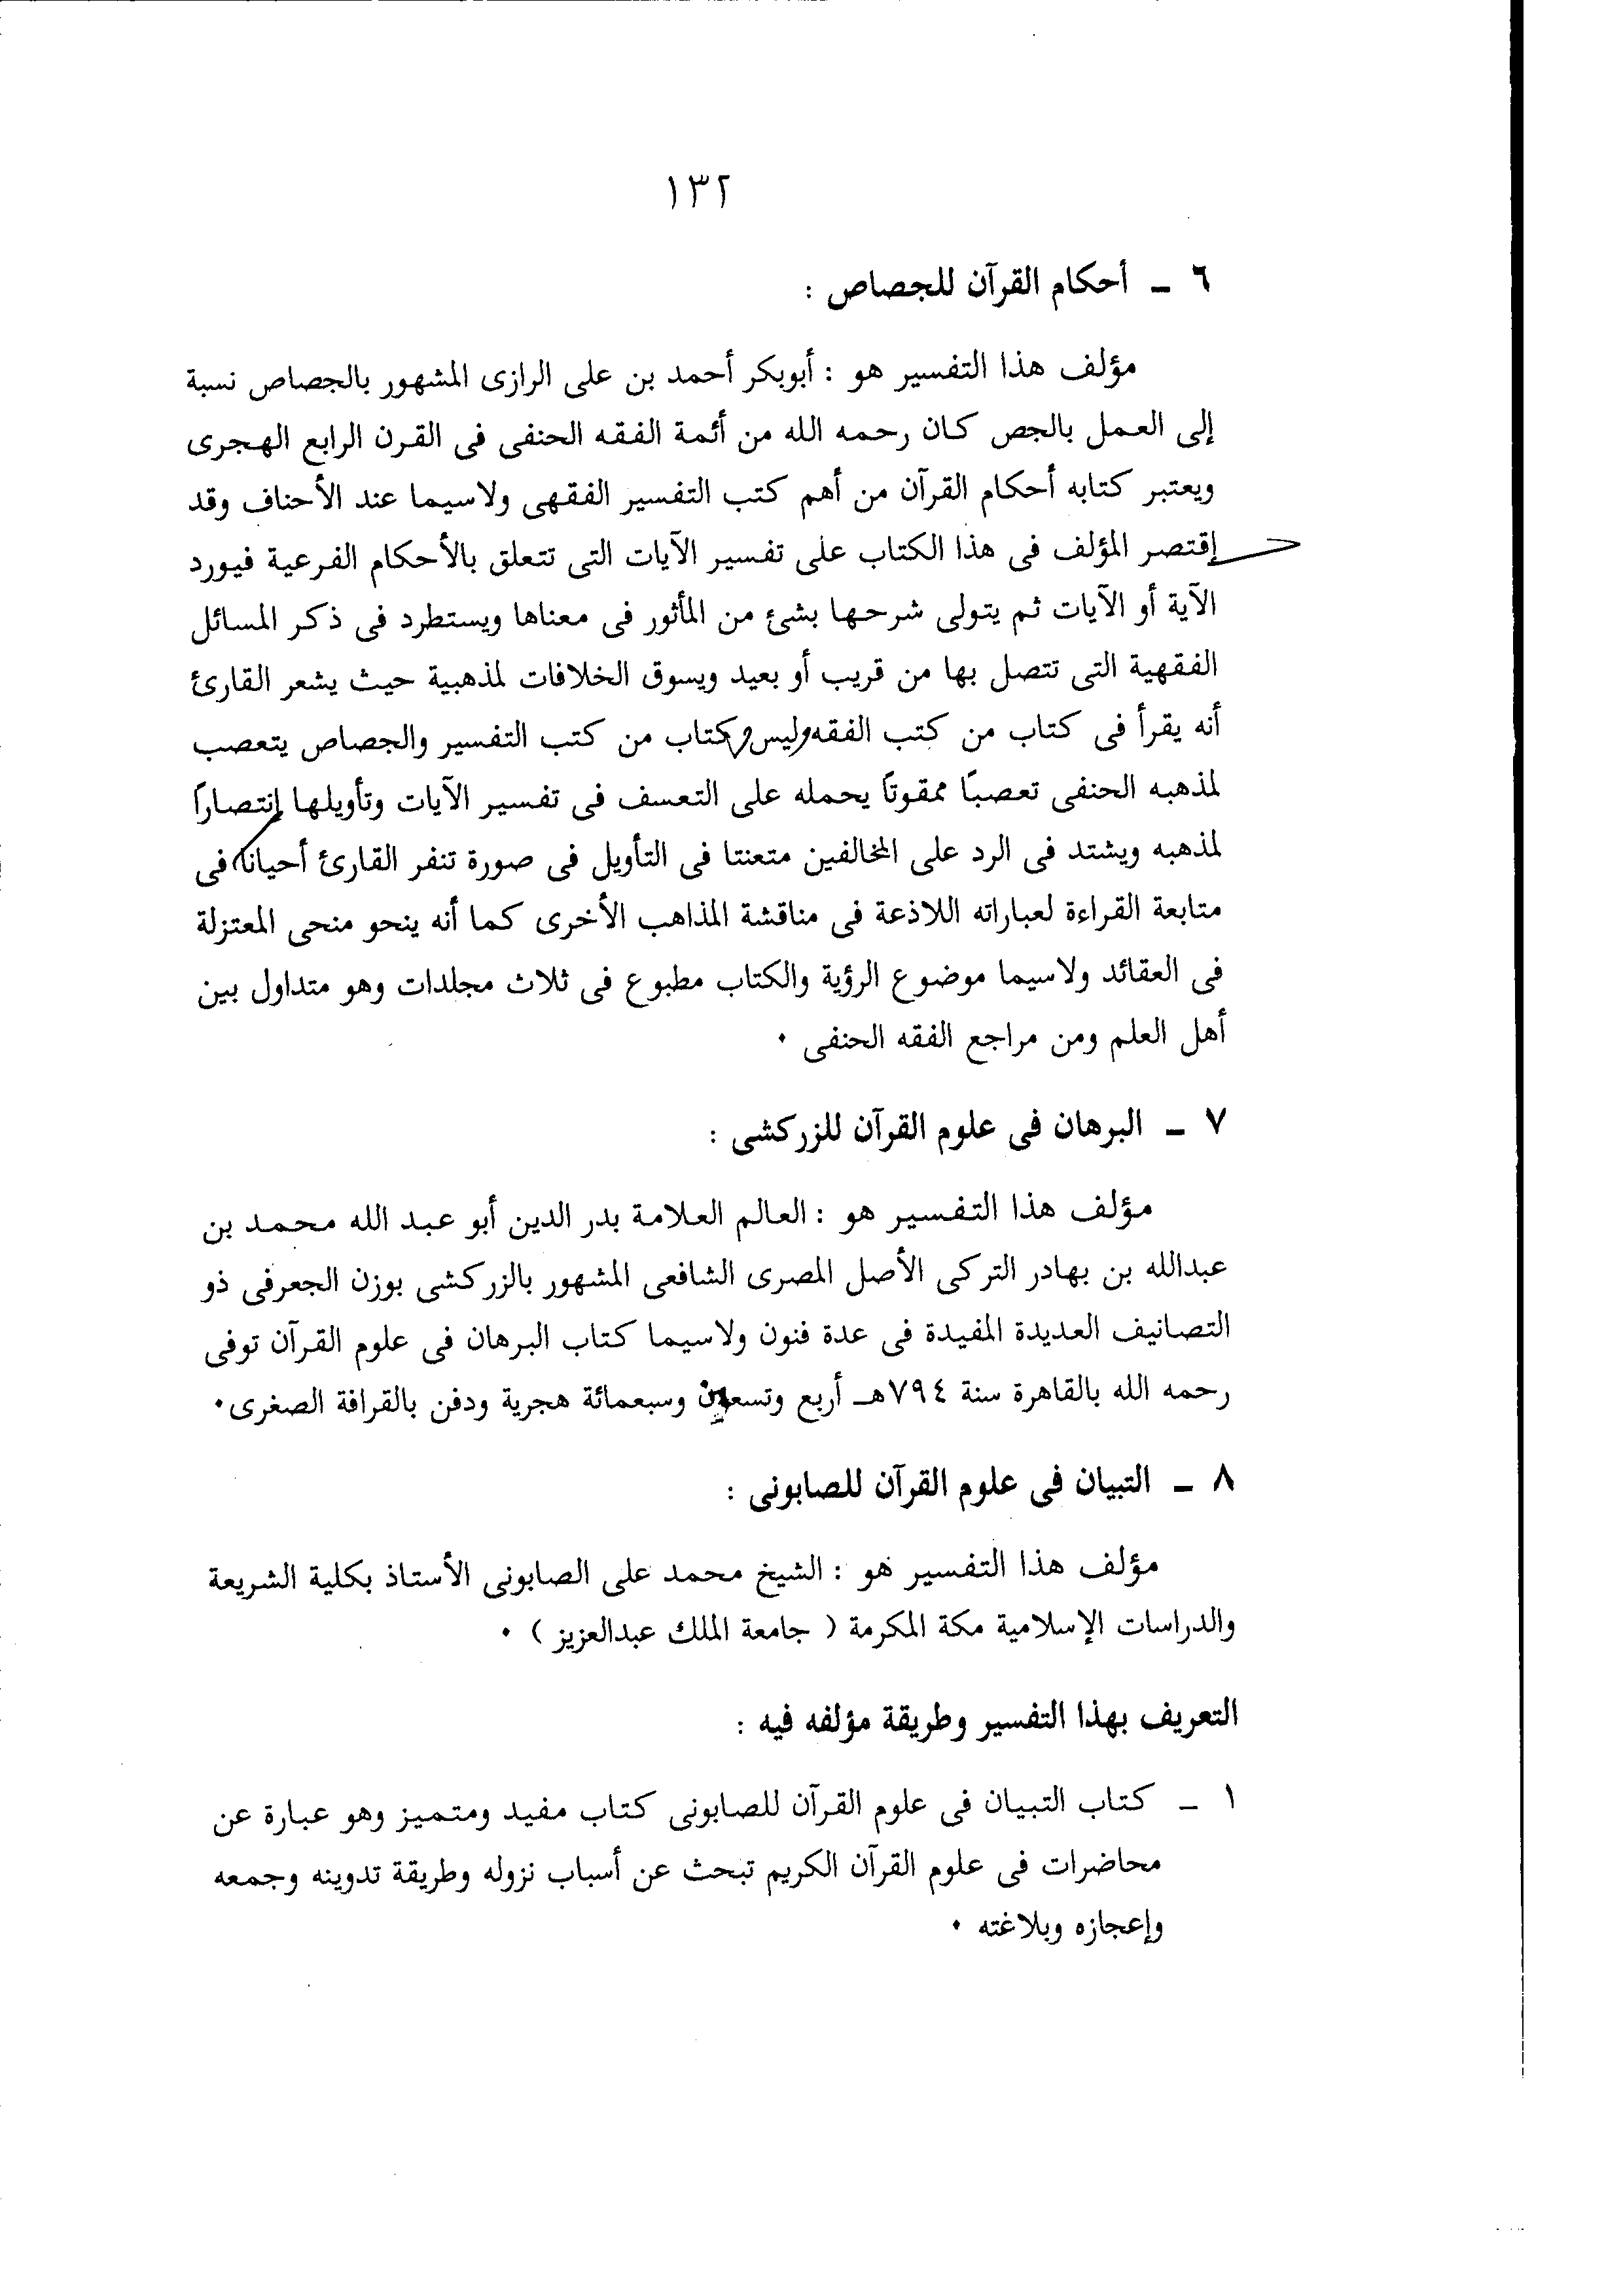 ١٣٢
٦ ـ أحكام القرآن للجصاص :
مؤلف هذا التفسير هو : أبوبكر أحمد بن على الرازى المشهور بالجصاص نسبة
إلى العمل بالجص كان رحمه الله من أئمة الفقه الحنفى فى القرن الرابع الهجرى
ويعتبر كتابه أحكام القرآن من أهم كتب التفسير الفقهى ولاسيما عند الأحناف وقد
إقتصر المؤلف فى هذا الكتاب على تفسير الآيات التى تتعلق بالأحكام الفرعية فيورد
الآية أو الآيات ثم يتولى شرحها بشئ من المأثور فى معناها ويستطرد فى ذكر المسائل
الفقهية التى تتصل بها من قريب أو بعيد ويسوق الخلافات لمذهبية حيث يشعر القارئ
أنه يقرأ فى كتاب من كتب الفقه وليس كتاب من كتب التفسير والجصاص يتعصب
لمذهبه الحنفى تعصبًا ممقوتًا يحمله على التعسف فى تفسير الآيات وتأويلها إنتصارًا
لمذهبه ويشتد فى الرد على المخالفين متعنتا فى التأويل فى صورة تنفر القارئ أحيانا فى
متابعة القراءة لعباراته اللاذعة فى مناقشة المذاهب الأخرى كما أنه ينحو منحى المعتزلة
فى العقائد ولاسيما موضوع الرؤية والكتاب مطبوع فى ثلاث مجلدات وهو متداول بين
أهل العلم ومن مراجع الفقه الحنفى ٠
٧ ـ البرهان فى علوم القرآن للزركشى :
مؤلف هذا التفسير هو : العالم العلامة بدر الدين أبو عبد الله محمد بن
عبدالله بن بهادر التركى الأصل المصرى الشافعى المشهور بالزركشى بوزن الجعرفى ذو
التصانيف العديدة المفيدة فى عدة فنون ولاسيما كتاب البرهان فى علوم القرآن توفى
رحمه الله بالقاهرة سنة ٧٩٤هـ أربع وتسعين وسبعمائة هجرية ودفن بالقرافة الصغرى٠
٨ ـ التبيان فى علوم القرآن للصابونى :
مؤلف هذا التفسير هو : الشيخ محمد على الصابونى الأستاذ بكلية الشريعة
والدراسات الإسلامية مكة المكرمة ( جامعة الملك عبدالعزيز ) ٠
التعريف بهذا التفسير وطريقة مؤلفه فيه :
١ ـ كتاب التبيان فى علوم القرآن للصابونى كتاب مفيد ومتميز وهو عبارة عن
محاضرات فى علوم القرآن الكريم تبحث عن أسباب نزوله وطريقة تدوينه وجمعه
وإعجازه وبلاغته ٠